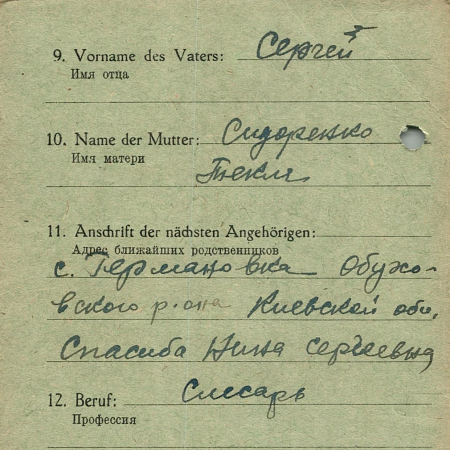 9. Vorname des Vaters: Сергей
Имя отца
10. Name der Mutter: Сидоренко
Имя матери
Текля
11. Anschrift der nächsten Angehörigen:
Адрес ближайших родственников
с. Германовка Обухо-
вского р-она Киевской обл.
Спасиба Нина Сергеевна
12. Beruf: Слесарь
Профессия